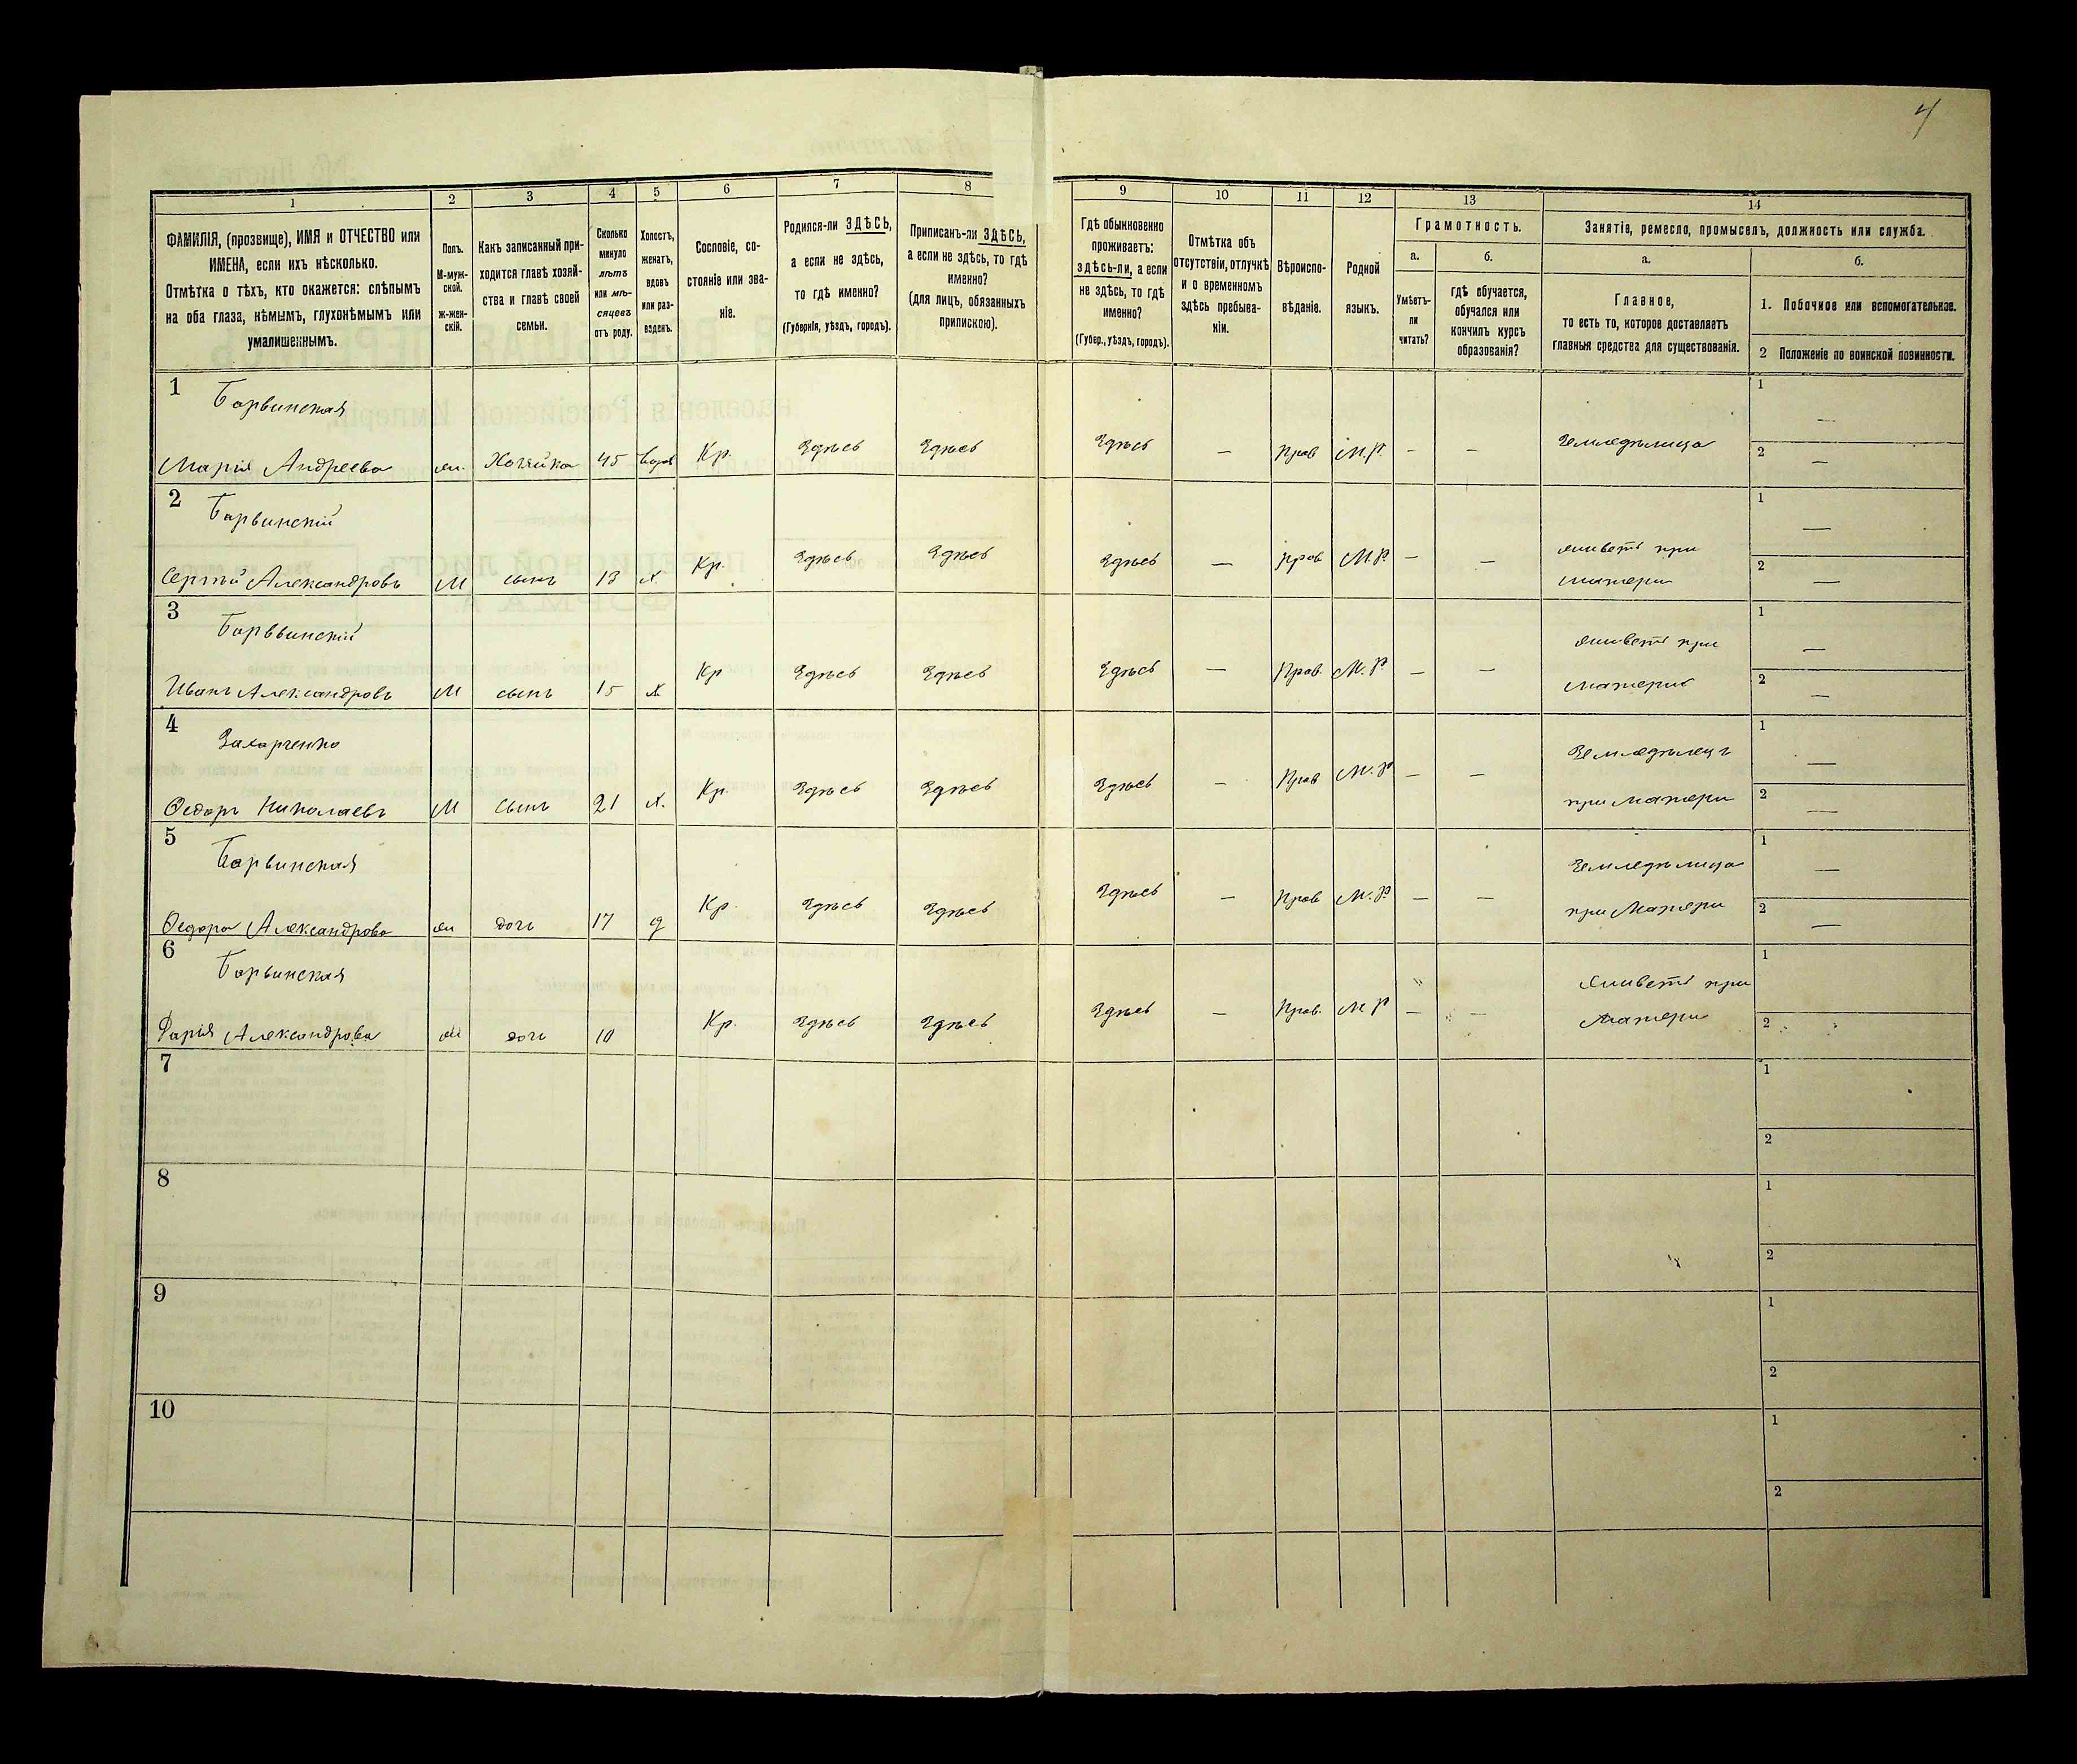 4
1 2 3 4 5 6 7 8 9 10 11 12 13 14
ФАМИЛІЯ, (прозвище), ИМЯ и ОТЧЕСТВО или
ИМЕНА, если ихъ нѣсколько.
Отмѣтка о тѣхъ, кто окажется: слѣпымъ
на оба глаза, нѣмымъ, глухонѣмымъ или
умалишеннымъ.
Полъ.
М-муж-
ской.
Ж-жен-
скій.
Какъ записанный при-
ходится главѣ хозяй-
ства и главѣ своей
семьи.
Сколько
минуло
лѣтъ
или мѣ-
сяцевъ
отъ роду.
Холостъ,
женатъ,
вдовъ
или раз-
веденъ.
Сословіе, со-
стояніе или зва-
ніе.
Родился-ли ЗДѢСЬ,
а если не здѣсь,
то гдѣ именно?
(Губернія, уѣздъ, городъ).
Приписанъ-ли ЗДѢСЬ,
а если не здѣсь, то гдѣ
именно?
(для лицъ, обязанныхъ
припискою).
Гдѣ обыкновенно
проживаетъ:
здѣсь-ли, а если
не здѣсь, то гдѣ
именно?
(Губер., уѣздъ, городъ).
Отмѣтка объ
отсутствіи, отлучкѣ
и о временномъ
здѣсь пребыва-
ніи.
Вѣроиспо-
вѣданіе.
Родной
языкъ.
Грамотность.
а.
Умѣетъ-
ли
читать?
б.
гдѣ обучается,
обучался или
кончилъ курсъ
образованія?
Занятія, ремесло, промыселъ, должность или служба.
а.
Главное,
то есть то, которое доставляетъ
главныя средства для существованія.
б.
1. Побочное или вспомогательное.
2 Положеніе по воинской повинности.
1 Барвинская 1 —
Марія Андреева жи. Хозяйка 45 вдова Кр. Здѣсь Здѣсь Здѣсь — Прав М.Р. — — Земледѣлица 2 —
2 Барвинскій 1 —
Сергѣй Александровъ М сынъ 13 х. Кр. Здѣсь Здѣсь Здѣсь — прав М.Р. — — живетъ при
матери 2 —
3 Барввинскій 1 —
Иванъ Александровъ М сынъ 15 х Кр Здѣсь Здѣсь Здѣсь — Прав. М.Р — — живетъ при
матери 2 —
4 Захарченко 1 —
Ѳедоръ Николаевъ М сынъ 21 х. Кр. Здѣсь Здѣсь Здѣсь — Прав М.Р — — Земледѣлецъ
при матери 2 —
5 Барвинская 1 —
Ѳедора Александрова жи дочь 17 д Кр. Здѣсь Здѣсь Здѣсь — Прав М.Р. — — Земледѣлица
при Матери 2 —
6 Барвинская 1
Дарія Александрова жи дочь 10 Кр. Здѣсь Здѣсь Здѣсь — Прав. М Р — — Живетъ при
матери 2
7 1
2
8 1
2
9 1
2
10 1
2